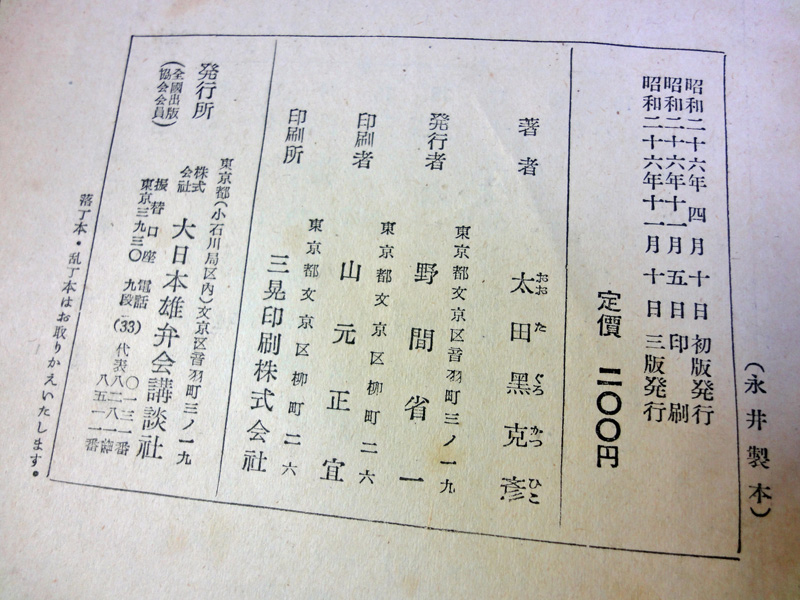 (永井製本)
昭和二十六年四月十日初版発行
昭和二十六年十一月五日印刷
昭和二十六年十一月十日三版発行
定價 二〇〇円
著者 太田黑克彥
おお た ぐろ かつ ひこ
東京都文京区音羽町三ノ一九
発行者 野間省一
東京都文京区柳町二六
印刷者 山元正宜
東京都文京区柳町二六
印刷所 三晃印刷株式会社
発行所
(全國出版協会会員)
東京都(小石川局区内)文京区音羽町三ノ一九
株式会社 大日本雄弁会講談社
振替口座 東京三九三〇
電話 九段(33) 代表
〇一三一番
八二八一
八五一一番
落丁本・乱丁本はお取りかえいたします。